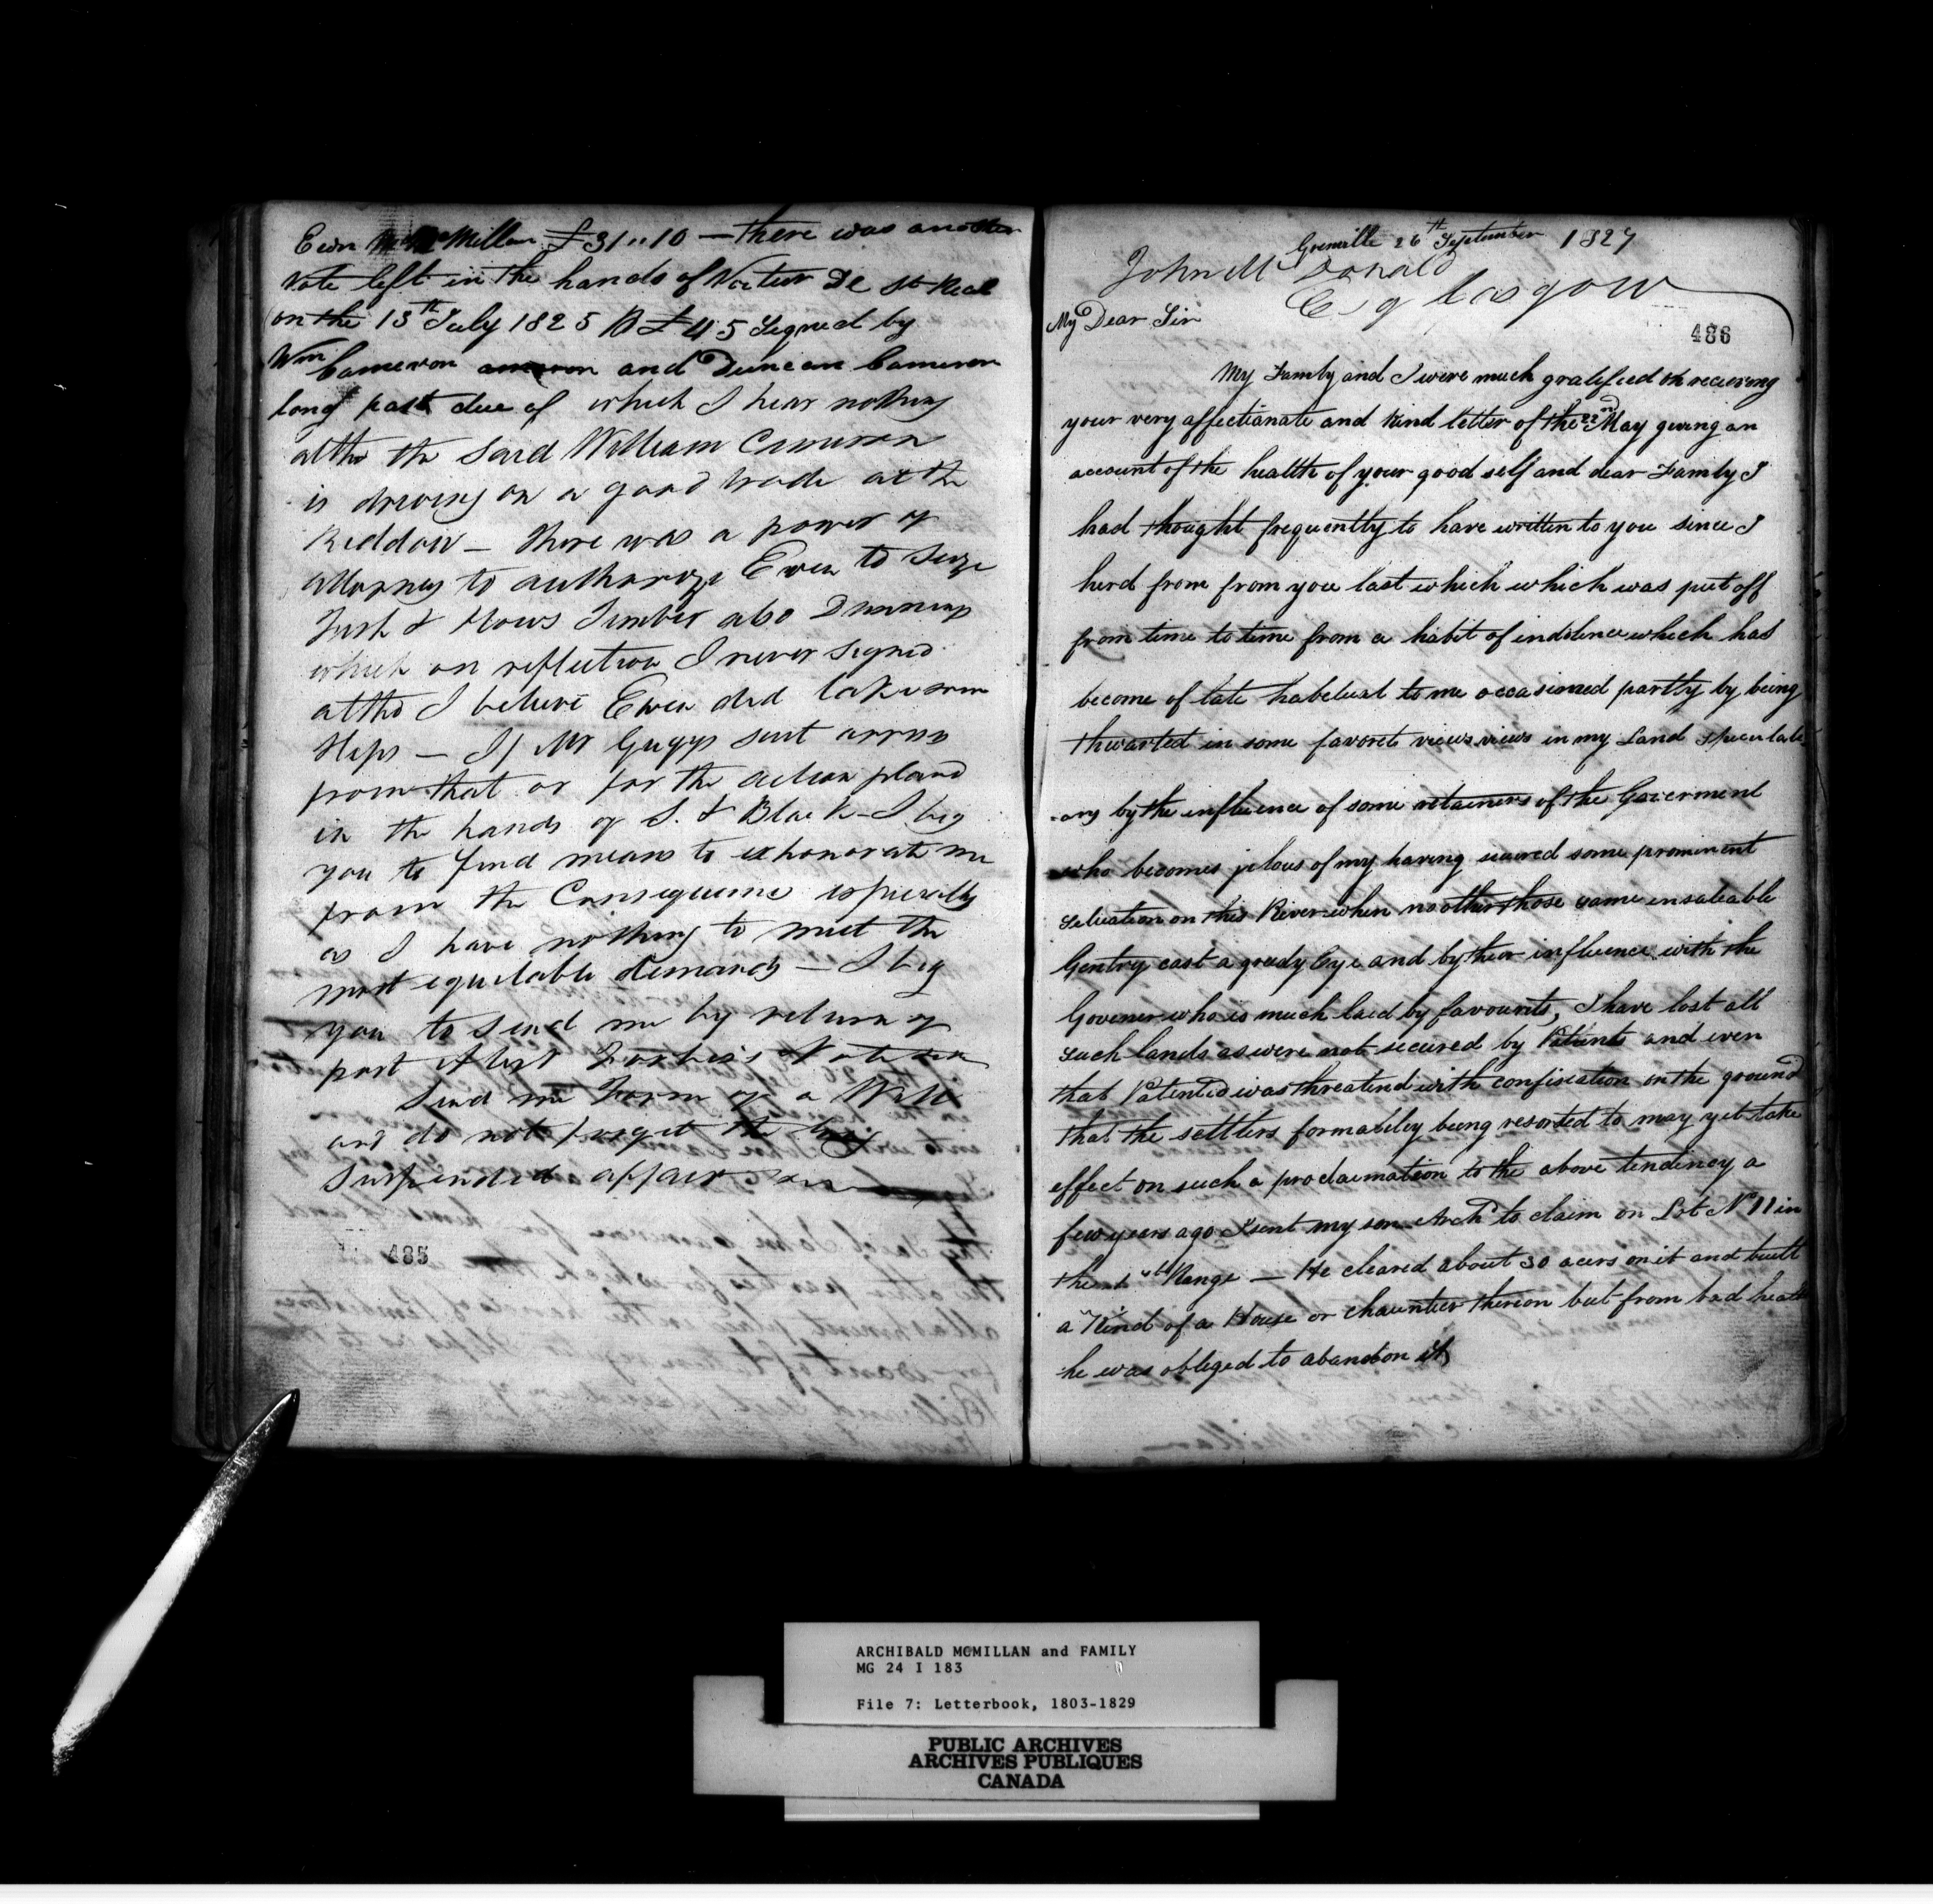 Ewn McMillan £31"10 — there was another
Note left in the hands of Notier De St Real
on the 13th July 1825 £45 Signed by
Wm Cameron and Duncan Cameron
long past due of which I hear nothing
altho the Said William Cameron
is driving on a good trade at the
Reddow — there was a power of
attorney to authorize Ewen to Seize
& Hows Timber also Dunning
which on reflection I never signed
altho I believe Ewen did take some
steps — If Mr Gugys suit arises
from that or for the action placed
in the hands of S. & Black — I beg
you to find means to exhonorate me
from the Consequence especially
as I have nothing to meet the
most equitable demands — I beg
you to send me by return of
post Alexr Forbes's Note
Send me Form of a Will
and do not forget the
Suspended affair
485
Grenville 26th September 1827
John McDonald
Esq Glasgow
486
My Dear Sir
My Family and I were much gratified on recieving
your very affectianate and kind letter of the 22nd May geving an
account of the health of your good self and dear Family I
had thought frequently to have written to you since I
herd from from you last which which was put off
from time to time from a habit of indolence which has
become of late habetual to me occasioned partly by being
thwarted in some favorite views views in my Land Speculate
-ons by the influence of some retainers of the Goverment
who becomes jelous of my having secured some prominent
setuation on this River when no other those same insateable
Gentry cast a greedy Eye and by their influence with the
Govenor who is much laed by favourits, I have lost all
such lands as were not secured by Patents and even
that Patented was threatend with confiscation on the ground
that the settlers formaliley being resorted to may yet take
effect on such a proclaimation to the above tendency a
few years ago I sent my son Archd to claim on Lot No 11 in
the 4th Range — He cleared about 30 acers on it and built
a Kind of a House or chauntier thereon but from bad heath
he was obleged to abandon it
ARCHIBALD MCMILLAN and FAMILY
MG 24 I 183
File 7: Letterbook, 1803-1829
PUBLIC ARCHIVES
ARCHIVES PUBLIQUES
CANADA